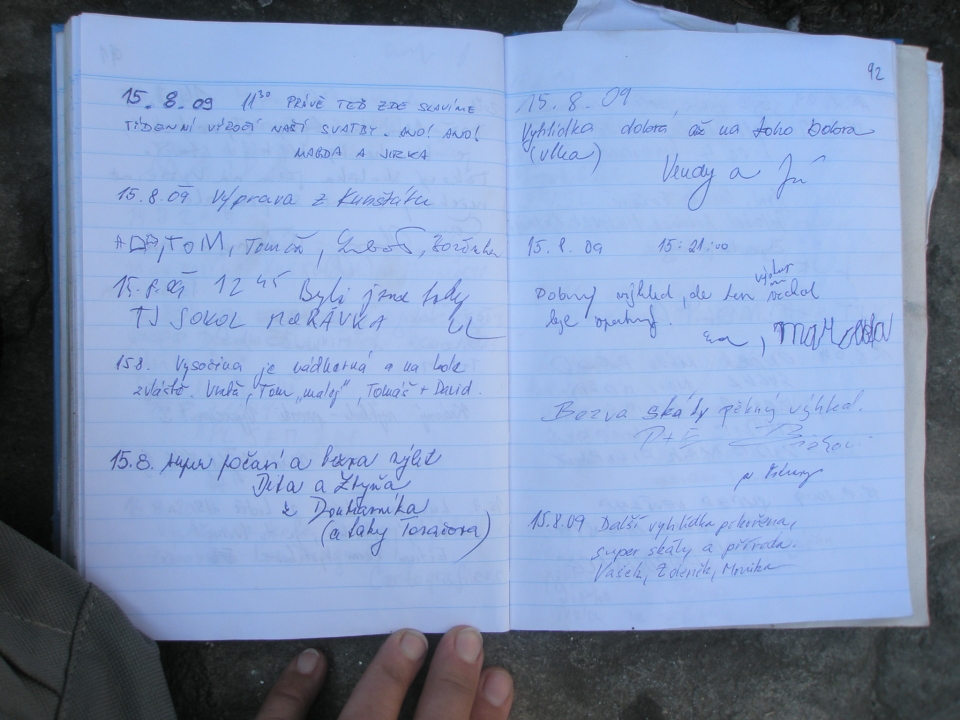 15.8.09 11³⁰ PRÁVĚ TEĎ ZDE SLAVÍME
TÍDENNÍ VÝROČÍ NAŠÍ SVATBY. ANO! ANO!
MAGDA A JIRKA
15.8.09 Výprava z Kunštátu
ADA, TOM, Tomáš,
15.8.09 12 45 Byli jsme taky
TJ SOKOL MORÁVKA
15.8. Vysočina je nádherná a na kole
zvláště. Tom „malej", Tomáš + David.
15.8. super počasí a bezva výlet
Dita a
z
(a taky
92
15.8.09
Vyhlídka dobrá až na toho bobra
(vlka)
Vendy a
15.8.09 15:21:00
Dobrý výhled, ale ten výstup
Eva, Markéta
Bezva skály pěkný výhled.
15.8.09 Další vyhlídka pokořena,
super skály a příroda.
Vašek, Zdeněk, Monika